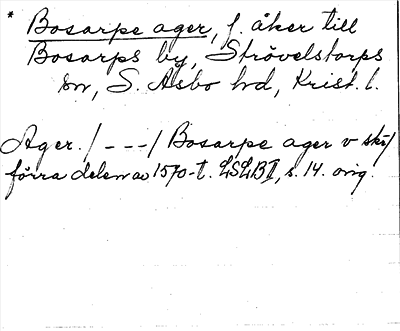 * Bosarpe ager, f. åker till
Bosarps by, Strövelstorps
sn, S. Åsbo hd, Krist. l.
Ager. / - - - / Bosarpe ager v skz/
förra delen av 1570-t. LSLB II, s. 14. orig.